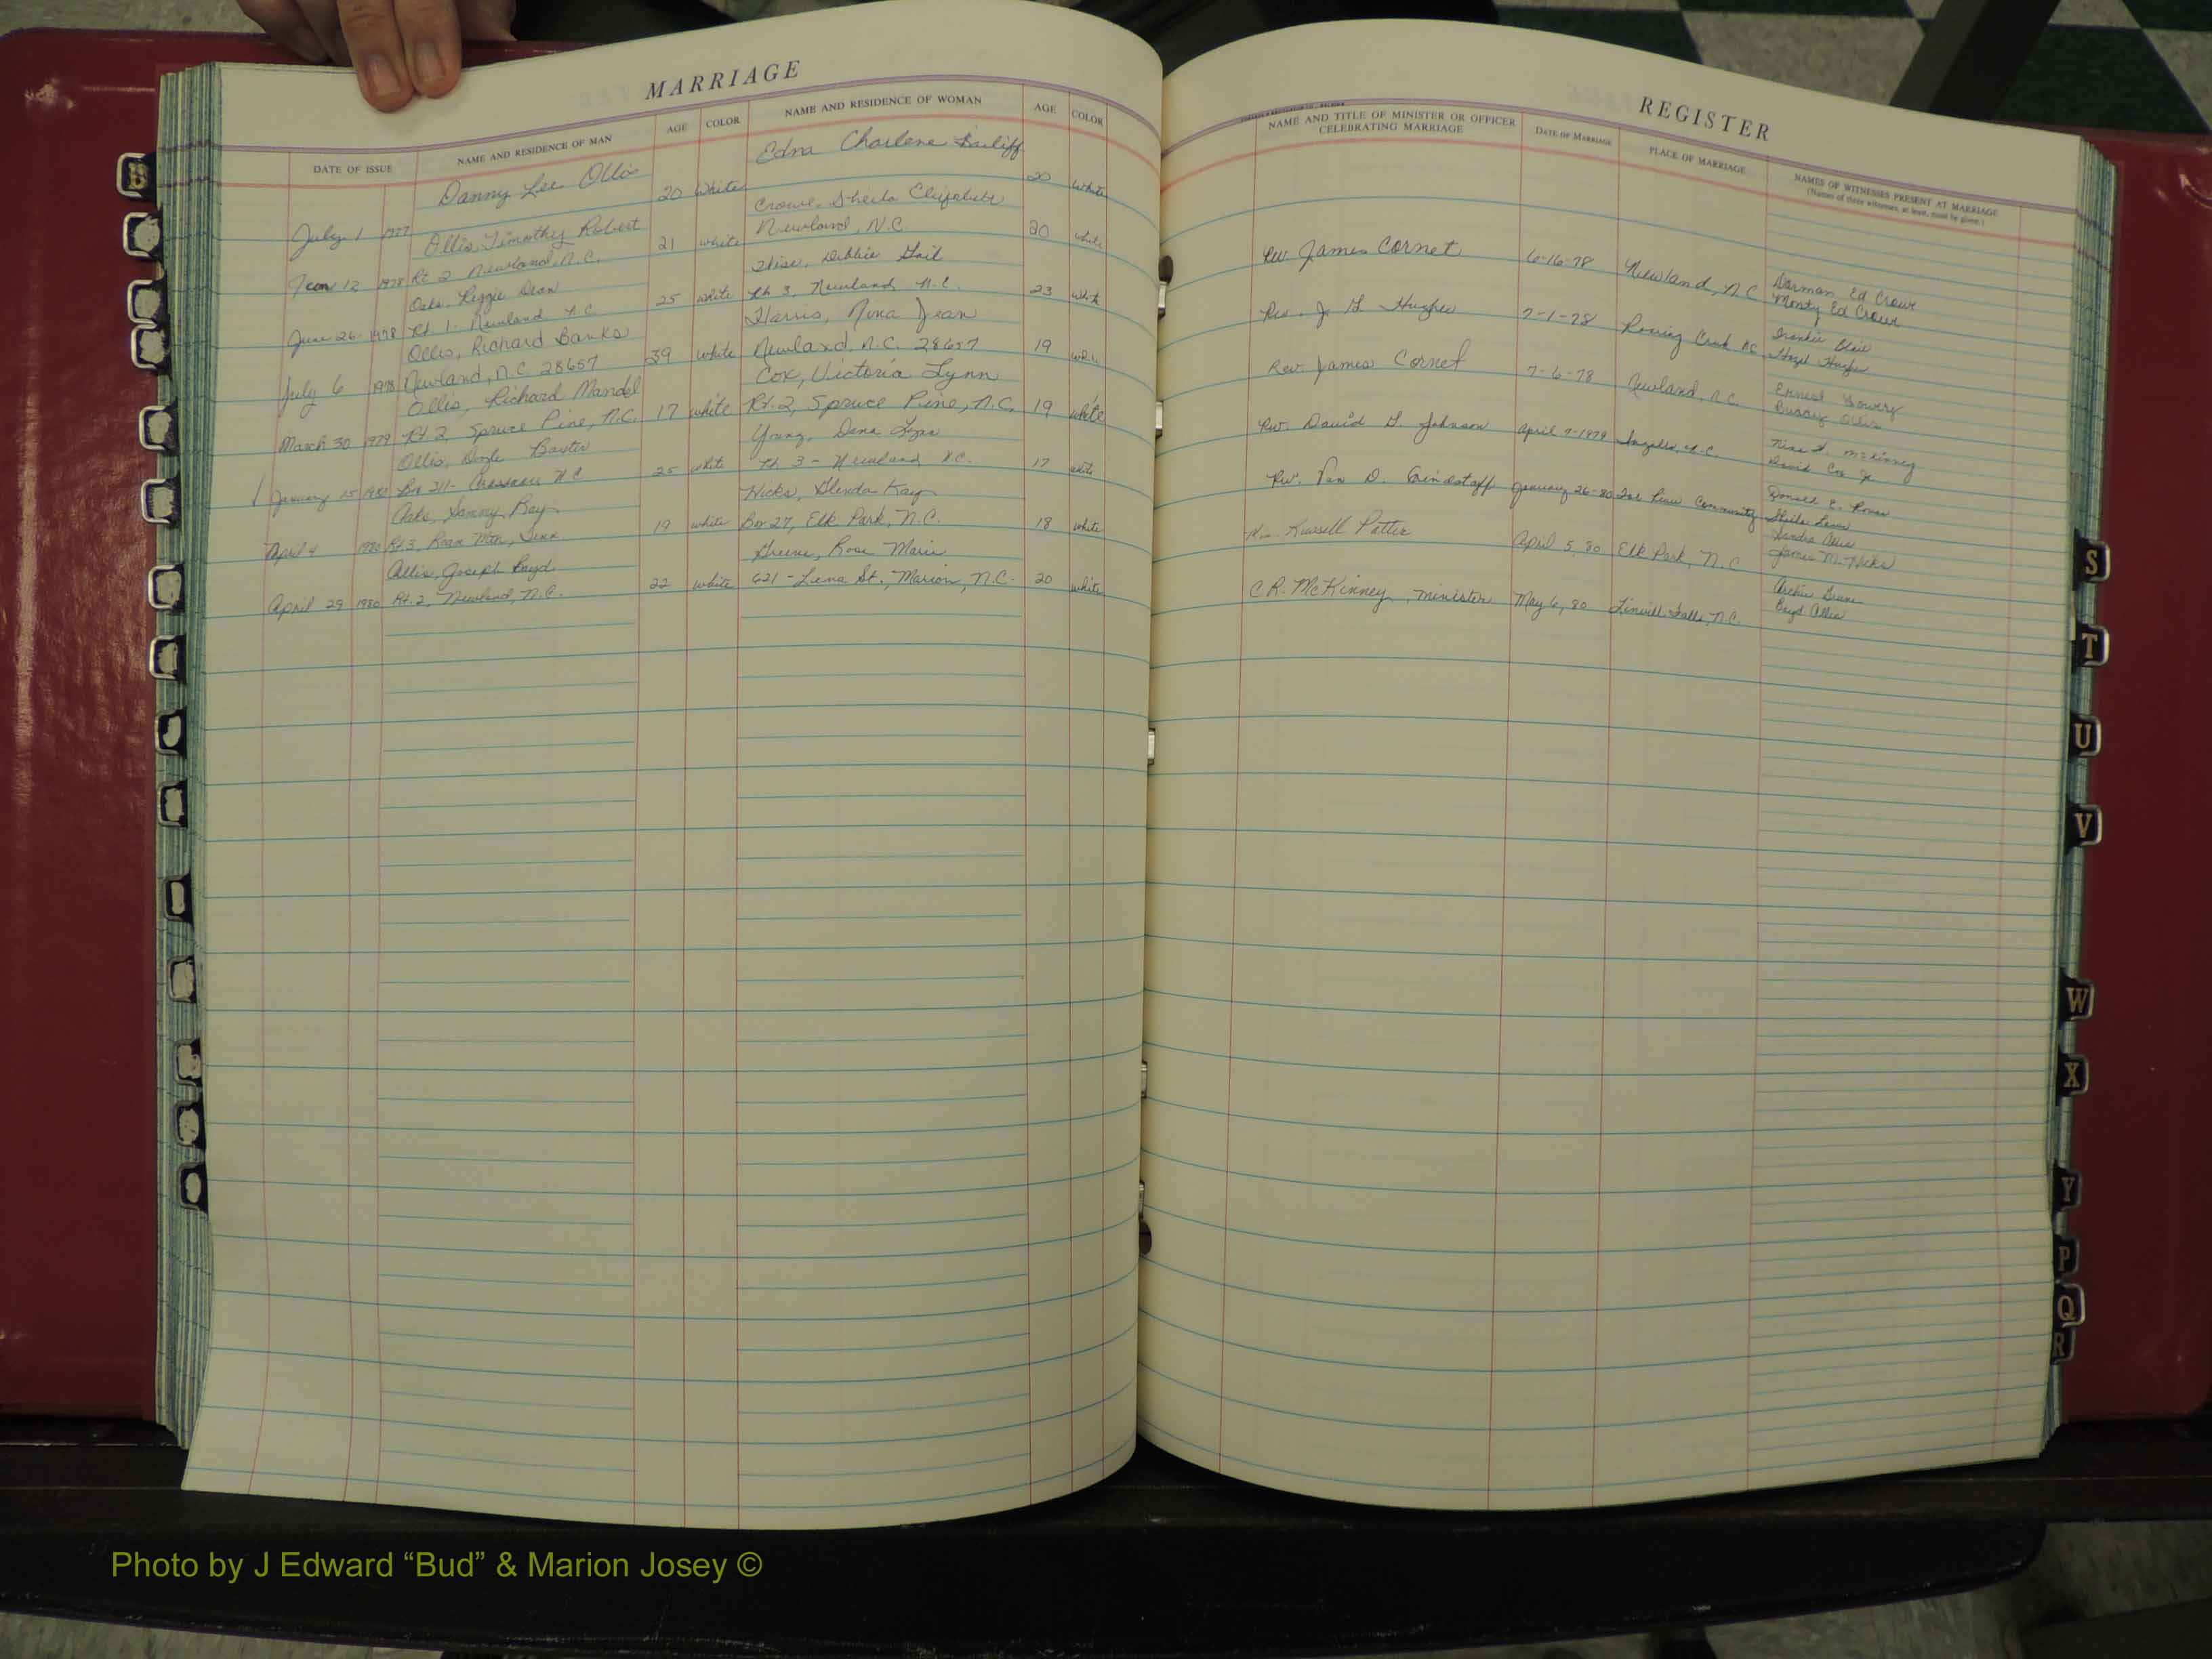 MARRIAGE
DATE OF ISSUE NAME AND RESIDENCE OF MAN AGE COLOR NAME AND RESIDENCE OF WOMAN AGE COLOR
Danny Lee Ollis 20 White Edna Charlene 20 White
July 1 1977
Ollis, Timothy Robert 21 white Crowe, Sheila Elizabeth 20 white
June 12 1978 Rt 2 Newland, N.C. Newland, N.C.
Oaks, Reggie Dean 25 white Wise, Debbie Gail 23 white
June 26 - 1978 Rt 1 - Newland N.C. Rt 3, Newland N.C.
Ollis, Richard Banks 39 white Harris, Nina Jean 19 white
July 6 1978 Newland, N.C. 28657 Newland, N.C. 28657
Ollis, Richard Mandel 17 white Cox, Victoria Lynn 19 white
March 30 1979 Rt 2, Spruce Pine, N.C. Rt. 2, Spruce Pine, N.C.
Ollis, Doyle Baxter 25 white Young, Dena 17 white
✓ January 25 1980 Box 311 - Crossnore N.C. Rt 3 - Newland N.C.
Oaks, Sammy Ray 19 white Hicks, Glenda Kay 18 white
April 4 1980 Rt 3, Roan Mtn, Tenn Box 27, Elk Park, N.C.
Ollis, Joseph Boyd 22 white Greene, Rose Marie 20 white
April 29 1980 Rt. 2, Newland, N.C. 621 - Lena St., Marion, N.C.
REGISTER
NAME AND TITLE OF MINISTER OR OFFICER CELEBRATING MARRIAGE DATE OF MARRIAGE PLACE OF MARRIAGE NAMES OF WITNESSES PRESENT AT MARRIAGE
(Names of three witnesses, at least, must be given.)
Rev. James Cornet 6-16-78 Newland, N.C. Dorman Ed Crowe
Monty Ed Crowe
Rev. J. H. Hughes 7-1-78 Roaring Creek N.C. Frankie
Hazel Hughes
Rev. James Cornet 7-6-78 Newland, N.C. Ernest Lowery
Buddy Ollis
Rev. David G. Johnson April 7-1979 Ingalls, N.C. Nina McKinney
David Cox Jr.
Rev. Van D. Grindstaff January 26-80 Community Donald E.
Sheila
Russell Potter April 5, 80 Elk Park, N.C. Sandra Ollis
James M. Hicks
C.R. McKinney, minister May 6, 80 Linvill Falls, N.C. Archie Greene
Boyd Ollis
S
T
U
V
W
X
Y
P
Q
R
Photo by J Edward “Bud” & Marion Josey ©